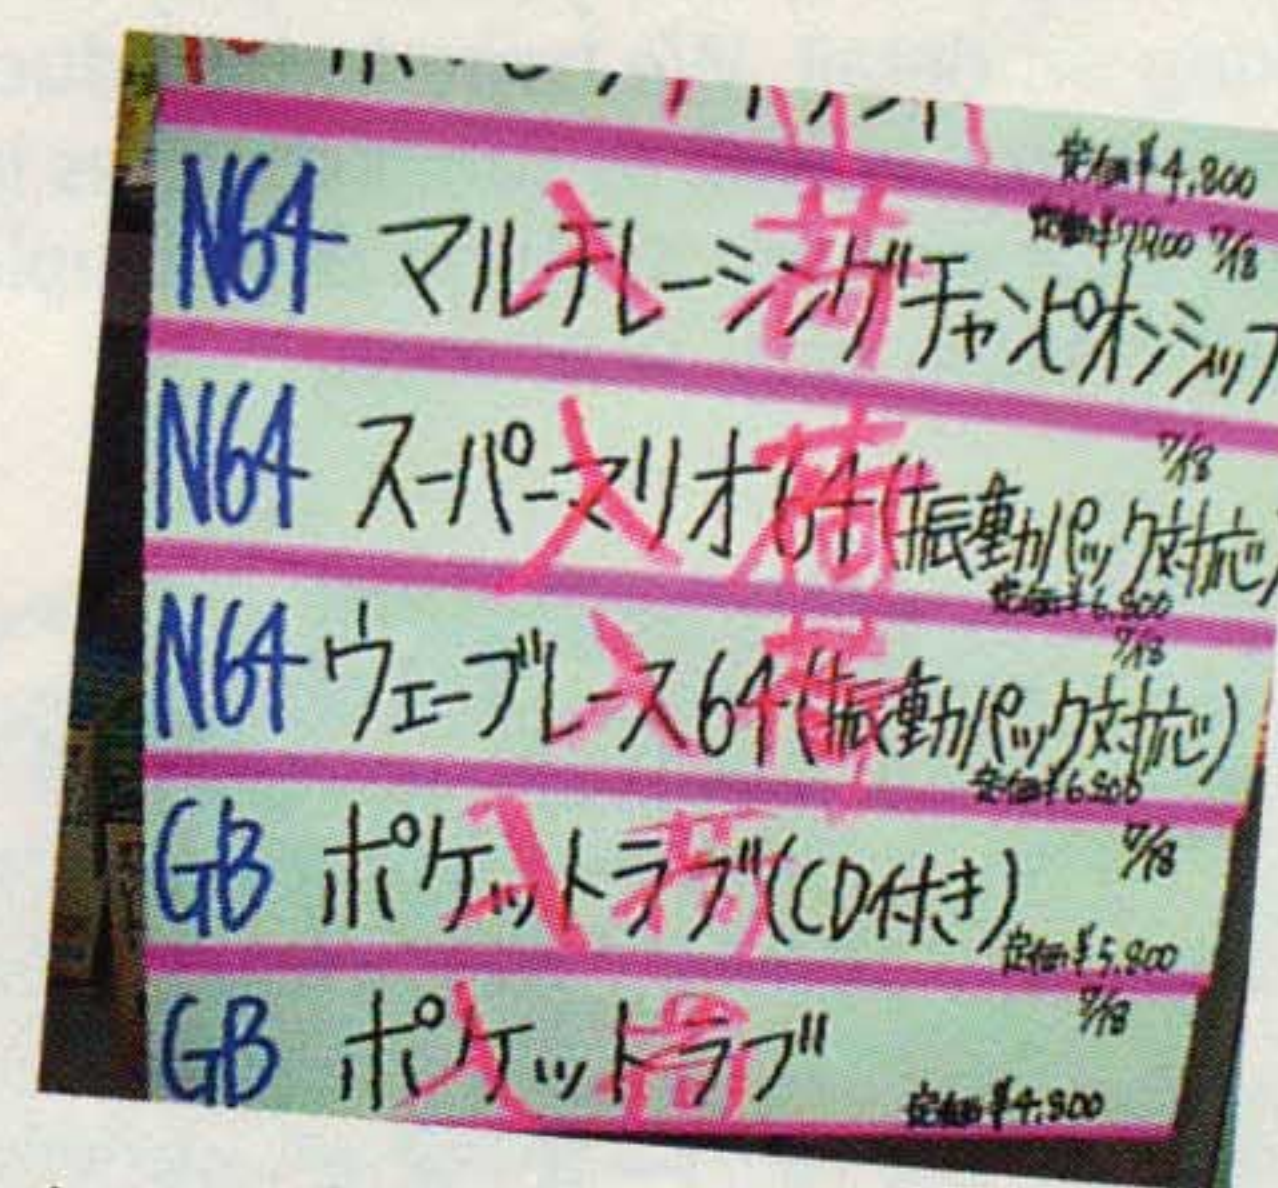 定価¥4,800
N64 マルチレーシングチャンピオンシップ 7/18
入荷
N64 スーパーマリオ64(振動パック対応) 7/18
定価¥6,800
入荷
N64 ウェーブレース64(振動パック対応) 7/18
定価¥6,800
入荷
GB ポケットラブ(CD付き) 7/18
定価¥5,800
入荷
GB ポケットラブ 7/18
定価¥4,800
入荷